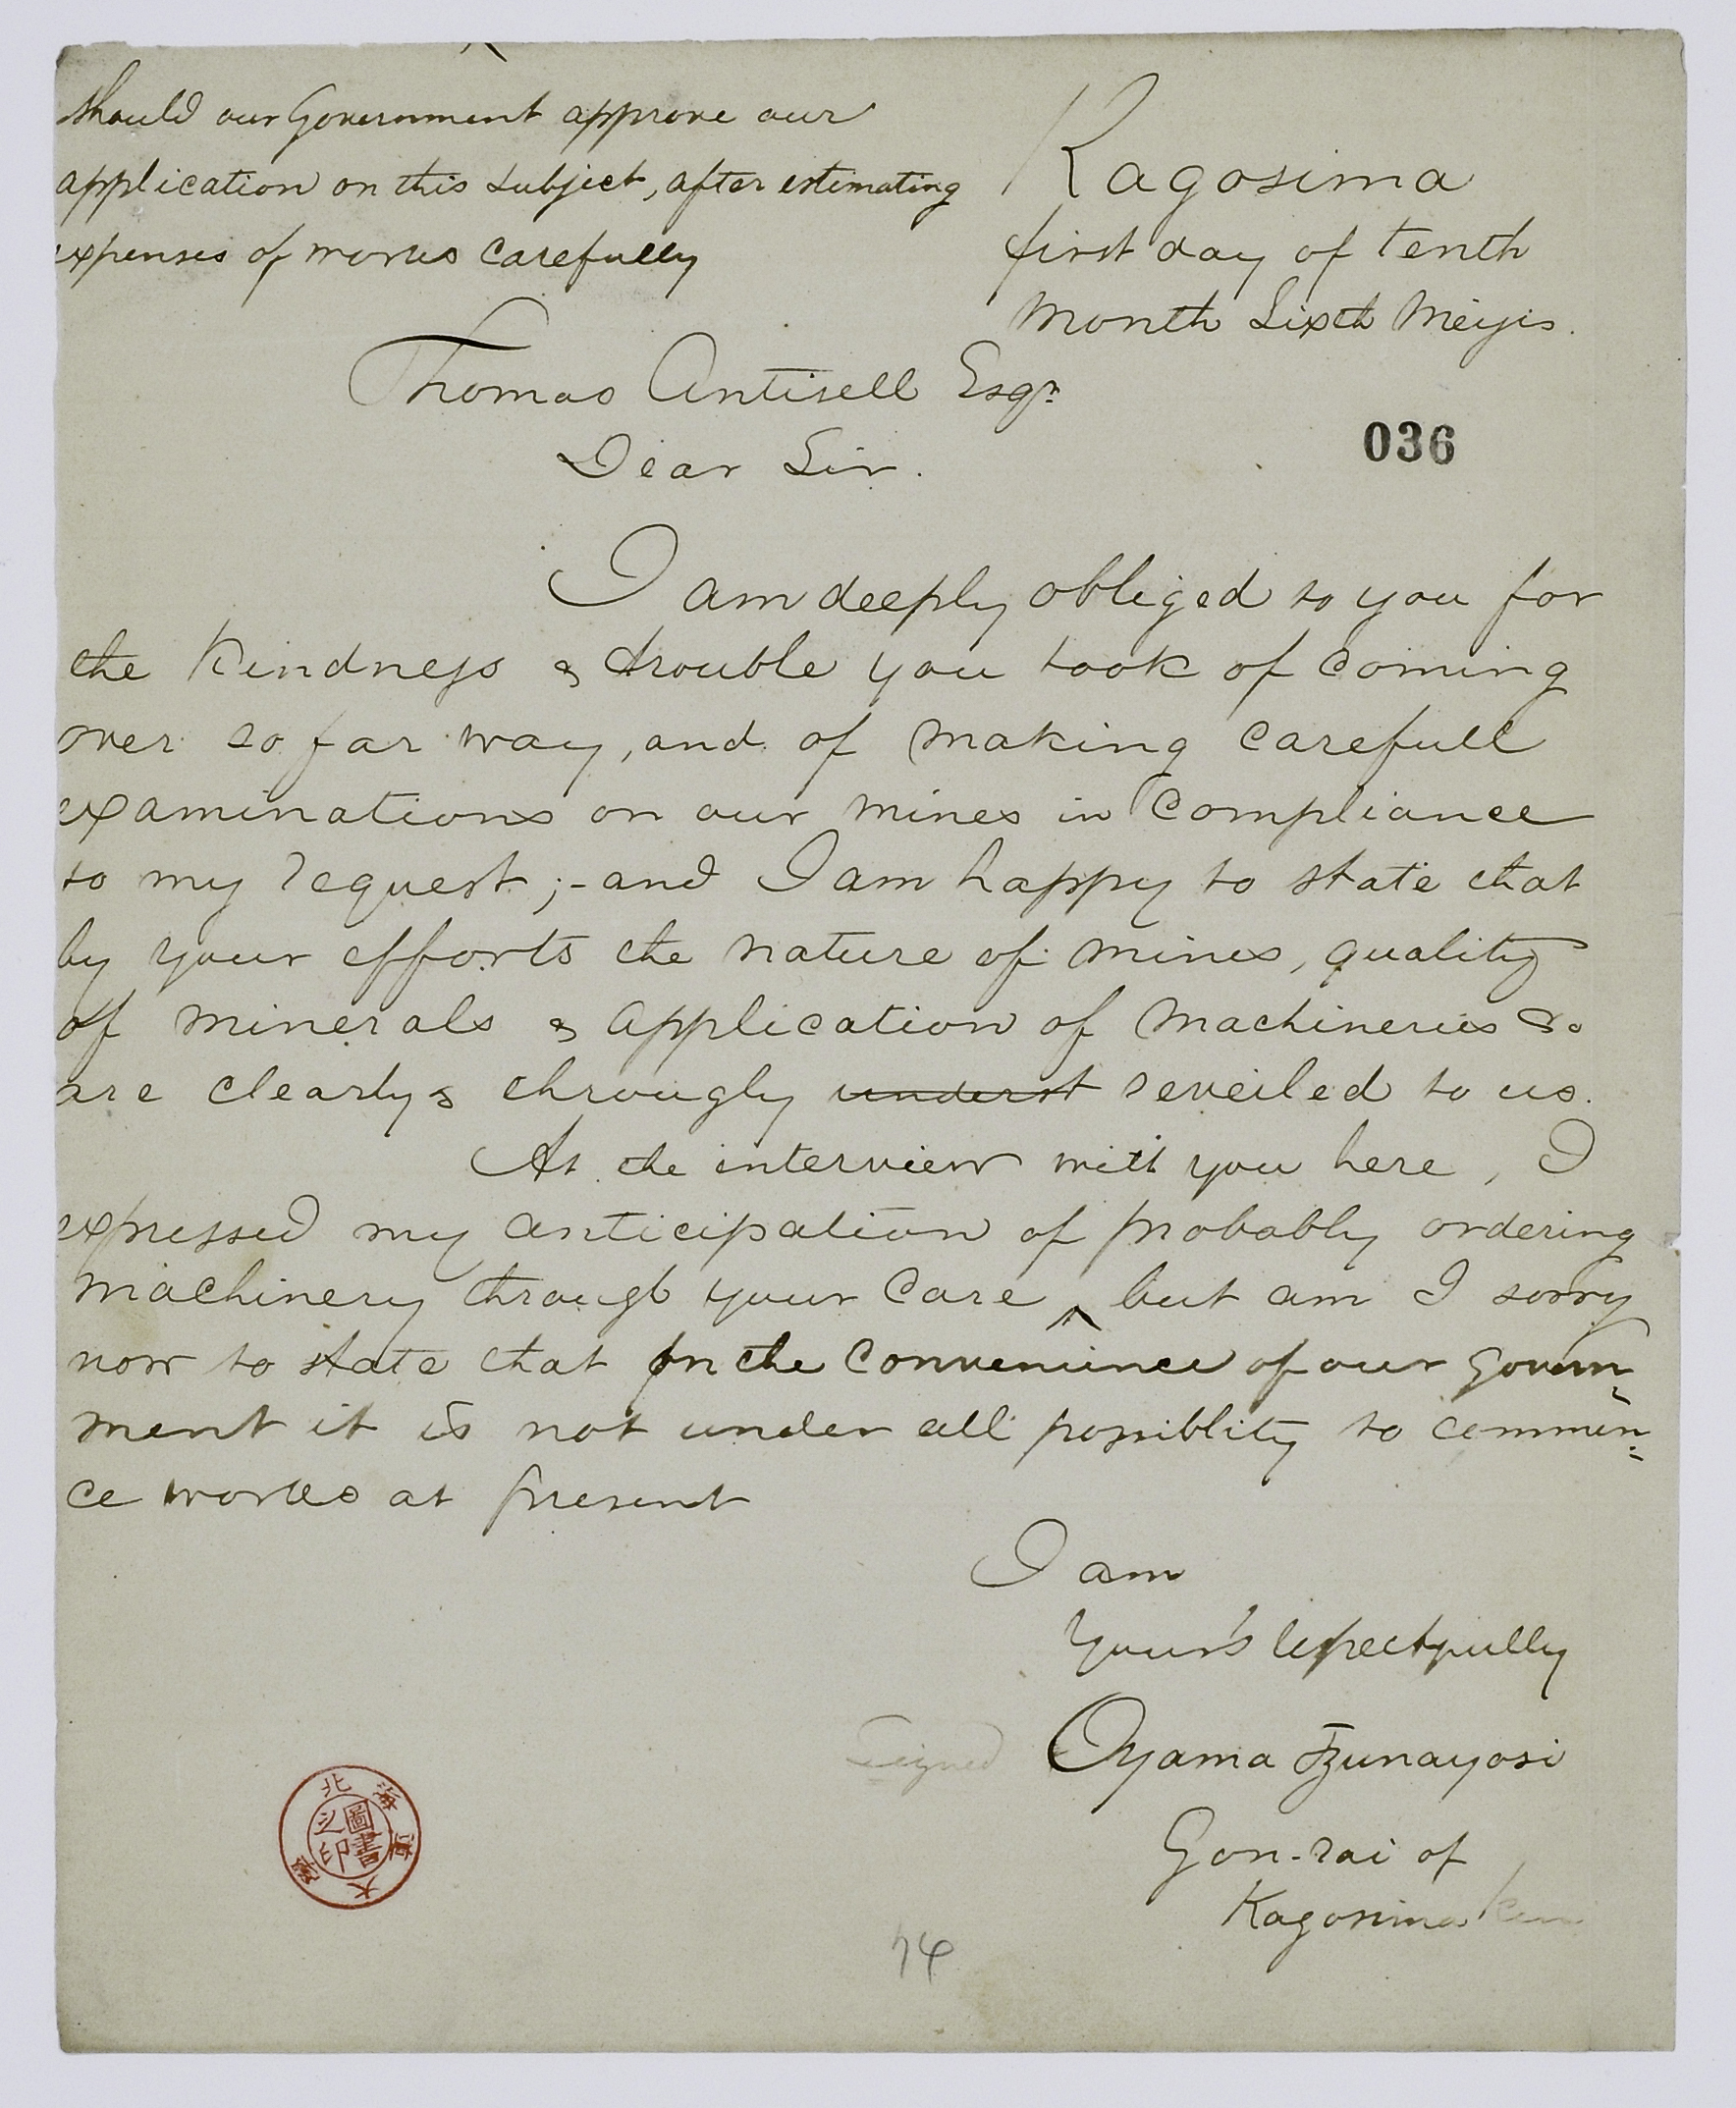 ^
should our Government approve our
application on this subject, after estimating
expenses of works carefully
Kagosima
first day of tenth
Month Sixth Meijis.
Thomas Antisell Esqr.
Dear Sir.
036
I am deeply obliged to you for
the kindness & trouble you took of coming
over so far way, and of making carefull
examinations on our mines in compliance
to my request ;- and I am happy to state that
by your efforts the nature of mines, quality
of minerals & application of machineries &c
are clearly & througly underst reveiled to us.
At the interview with you here, I
expressed my anticipation of probably ordering
machinery through your care ^ but am I sorry
now to state that the convenience of our Govern-
ment it is not under all possiblity to commen-
ce works at present
I am
Your's respectfully
Signed Oyama Tzunayosi
Gon-rai of
Kagosima Ken
北海道大學
圖書之印
74